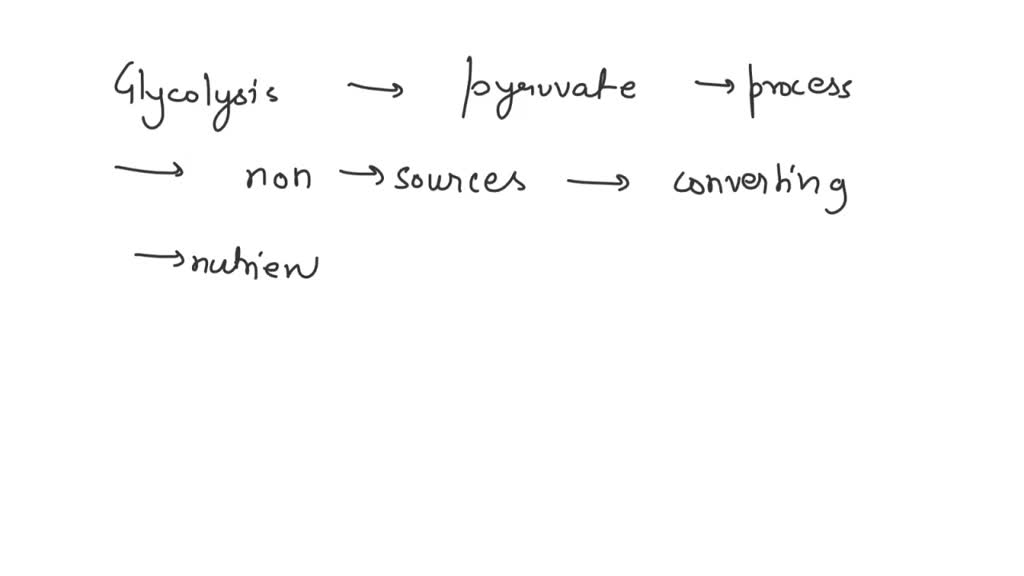 Glycolysis → pyruvate → process
→ non → sources → converting
→ nutrien